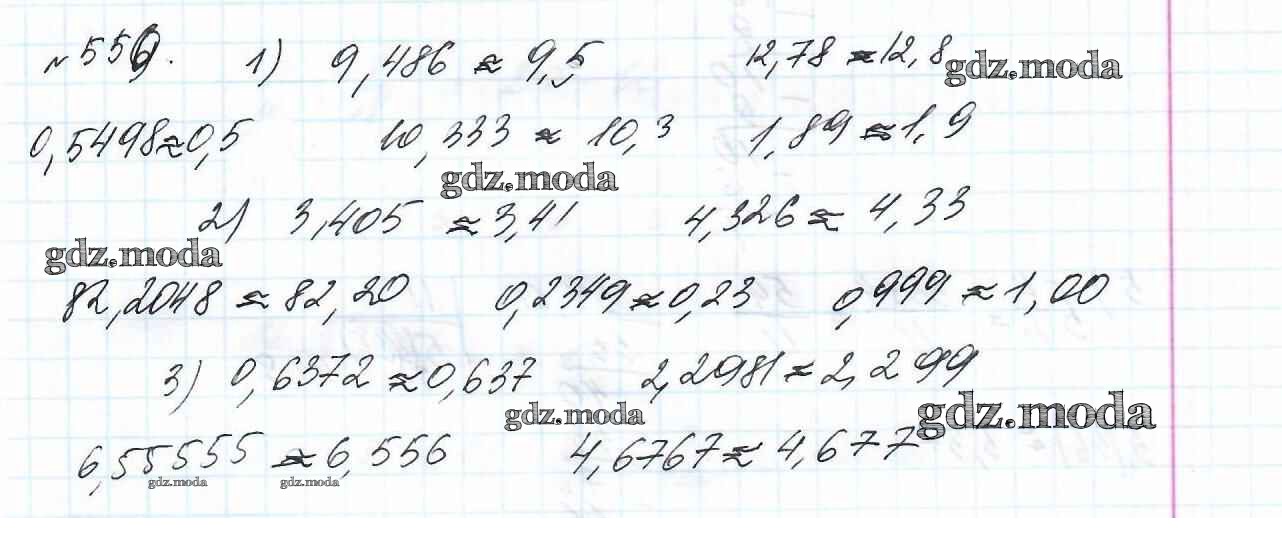 № 559. 1) 9,486 ≈ 9,5 12,78 ≈ 12,8
gdz.moda
0,5498 ≈ 0,5 10,333 ≈ 10,3 1,89 ≈ 1,9
gdz.moda
2) 3,405 ≈ 3,41 4,326 ≈ 4,33
gdz.moda
82,2048 ≈ 82,20 0,2349 ≈ 0,23 0,999 ≈ 1,00
3) 0,6372 ≈ 0,637 2,2981 ≈ 2,299
gdz.moda gdz.moda
6,55555 ≈ 6,556 4,6767 ≈ 4,677
gdz.moda gdz.moda